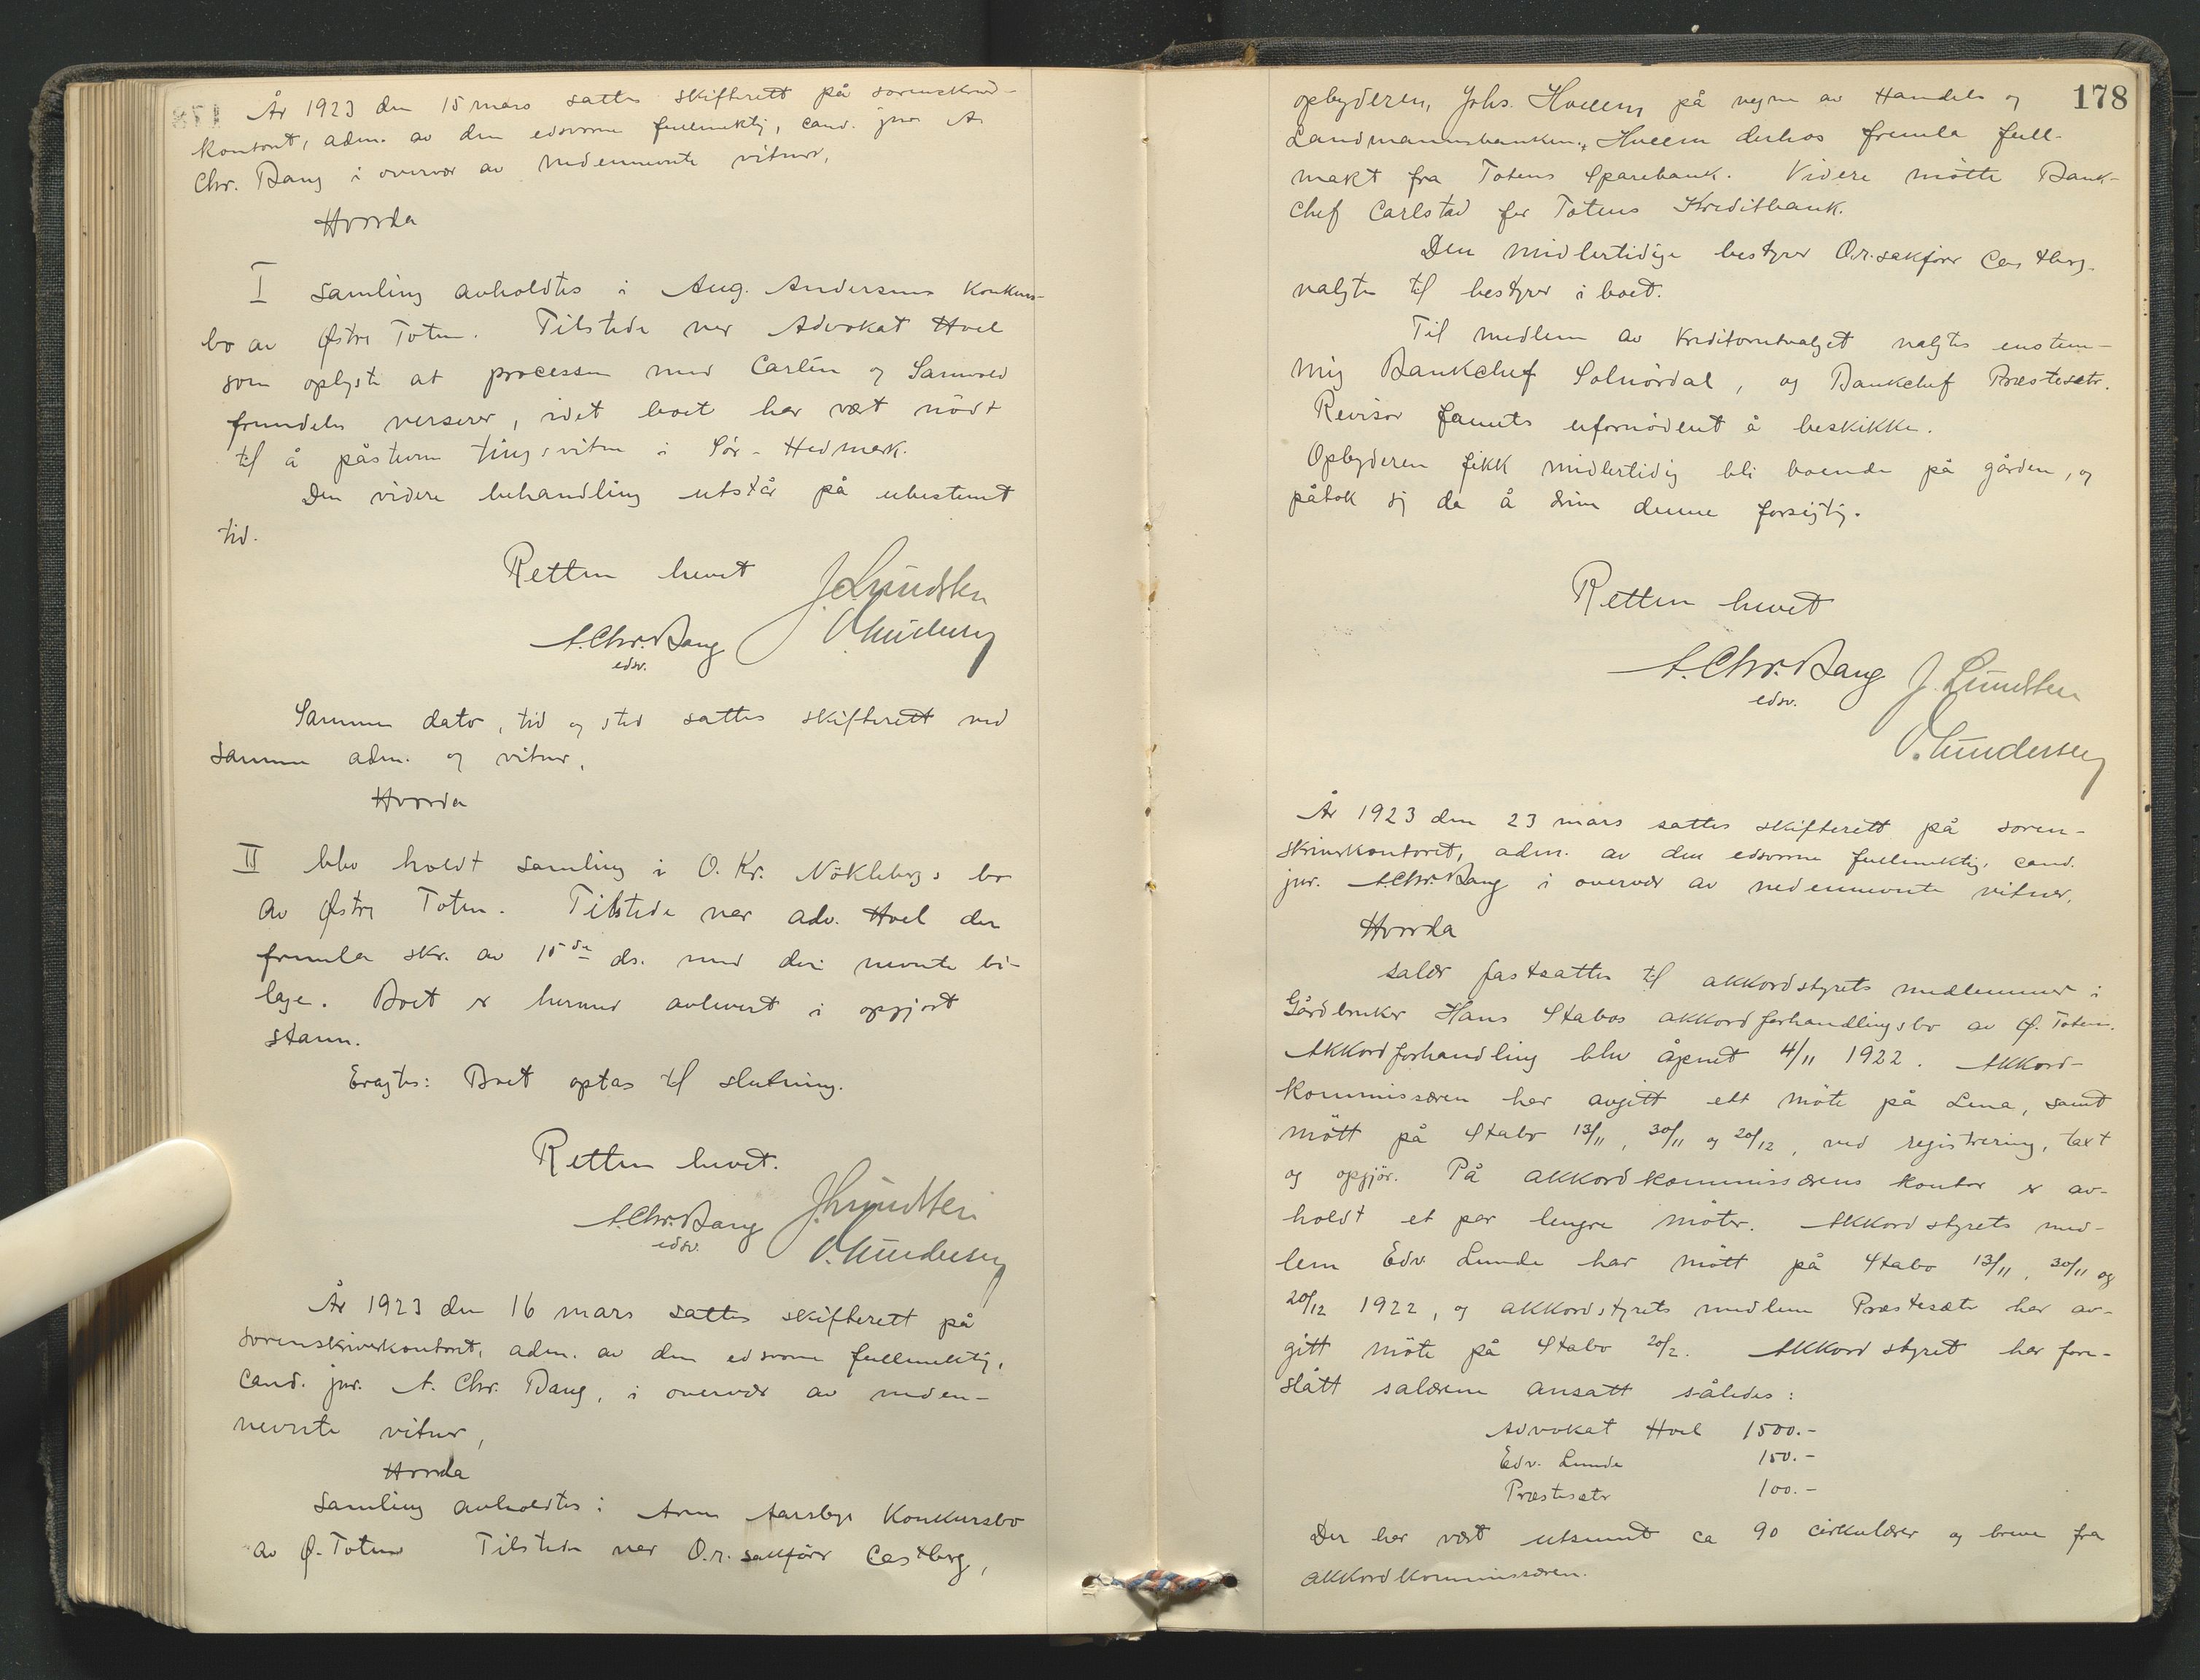 År 1923 den 15 mars sattes skifterett på sorenskriver-
kontoret, adm. av den edsvorne fullmektig, cand. jur. A.
Chr. Bang i overvær av nedennevnte vitner,
Hvorda
I samling avholdtes i Aug. Andersens konkurs-
bo av Østre Toten. Tilstede var Advokat Hoel
som oplyste at processen med Carlén og
fremdeles verserer, idet boet har vært nødt
til å påstevne tingsvitne i Sør-Hedmark.
Den videre behandling utstår på ubestemt
tid.
Retten hevet J. Lundsten
A. Chr. Bang O. Gundersen
edsv.
Samme dato, tid og sted sattes skifterett med
samme adm. og vitner,
Hvorda
II blev holdt samling i O. Kr. Nøklebergs bo
av Østre Toten. Tilstede var adv. Hoel der
fremla skr. av 15de ds. med deri nevnte bi-
lage. Boet er hermed avlevert i opgjort
stann.
Eragtes: Boet optas til slutning.
Retten hevet.
A. Chr. Bang J. Lundsten
edsv. O. Gundersen
År 1923 den 16 mars sattes skifterett på
sorenskriverkontoret, adm. av den edsvorne fullmektig,
cand. jur. A. Chr. Bang, i overvær av neden-
nevnte vitner,
Hvorda
Samling avholdtes i Arne Aarsbys konkursbo
av Ø. Toten Tilstede var O.r.sakfører Castberg,
178
opbyderen, Johs. Hveem på vegne av Handels og
Landmannsbanken. Hveem derhos fremla full-
makt fra Totens Sparebank. Videre møtte Bank-
chef Carlstad for Totens Kreditbank.
Den midlertidige bestyrer O.r.sakfører Castberg
valgtes til bestyrer i boet.
Til medlem av kreditorutvalget valgtes enstem-
mig Bankchef Solnørdal, og Bankchef Præstesæter.
Revisor fantes ufornødent å beskikke.
Opbyderen fikk midlertidig bli boende på gården, og
påtok sig da å drive denne forsigtig.
Retten hevet
A. Chr. Bang J. Lundsten
edsv.
O. Gundersen
År 1923 den 23 mars sattes skifterett på soren-
skriverkontoret, adm. av den edsvorne fullmektig, cand.
jur. A. Chr. Bang i overvær av nedennevnte vitner,
Hvorda
salær fastsattes til akkordstyrets medlemmer i
Gårdbruker Hans Stabos akkordforhandlingsbo av Ø. Toten.
Akkordforhandling blev åpnet 4/11 1922. Akkord-
kommissæren har avgitt ett møte på Lena, samt
møtt på Stabo 13/11, 30/11 og 20/12, ved registrering, taxt
og opgjør. På akkordkommissærens kontor er av-
holdt et par lengre møter. Akkordstyrets med-
lem Edv. Lunde har møtt på Stabo 13/11, 30/11 og
20/12 1922, og akkordstyrets medlem Præstesæter har av-
gitt møte på Stabo 20/2. Akkordstyret har fore-
slått salærene ansatt således:
Advokat Hoel 1500.-
Edv. Lunde 150.-
Præstesæter 100.-
Der har vært utsennt ca 90 cirkulærer og breve fra
akkordkommissæren.